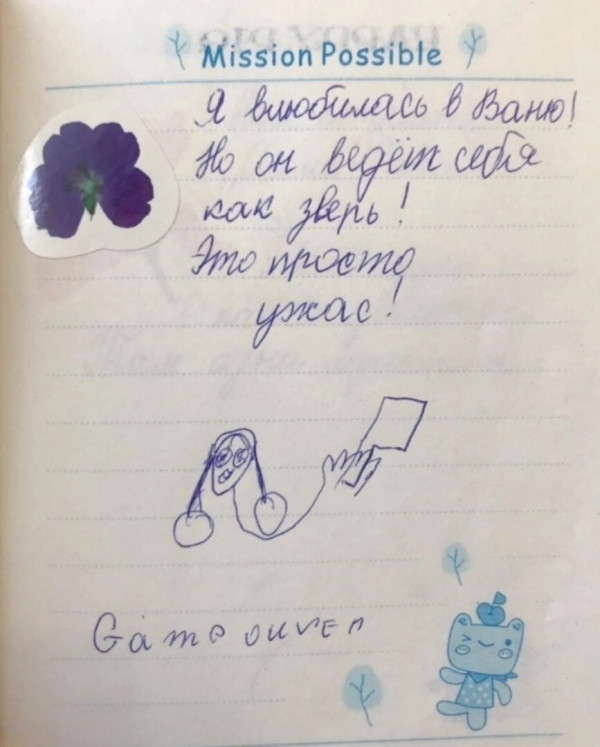 Mission Possible
Я влюбилась в Ваню!
Но он ведёт себя
как зверь!
Это просто
ужас!
Game ouver